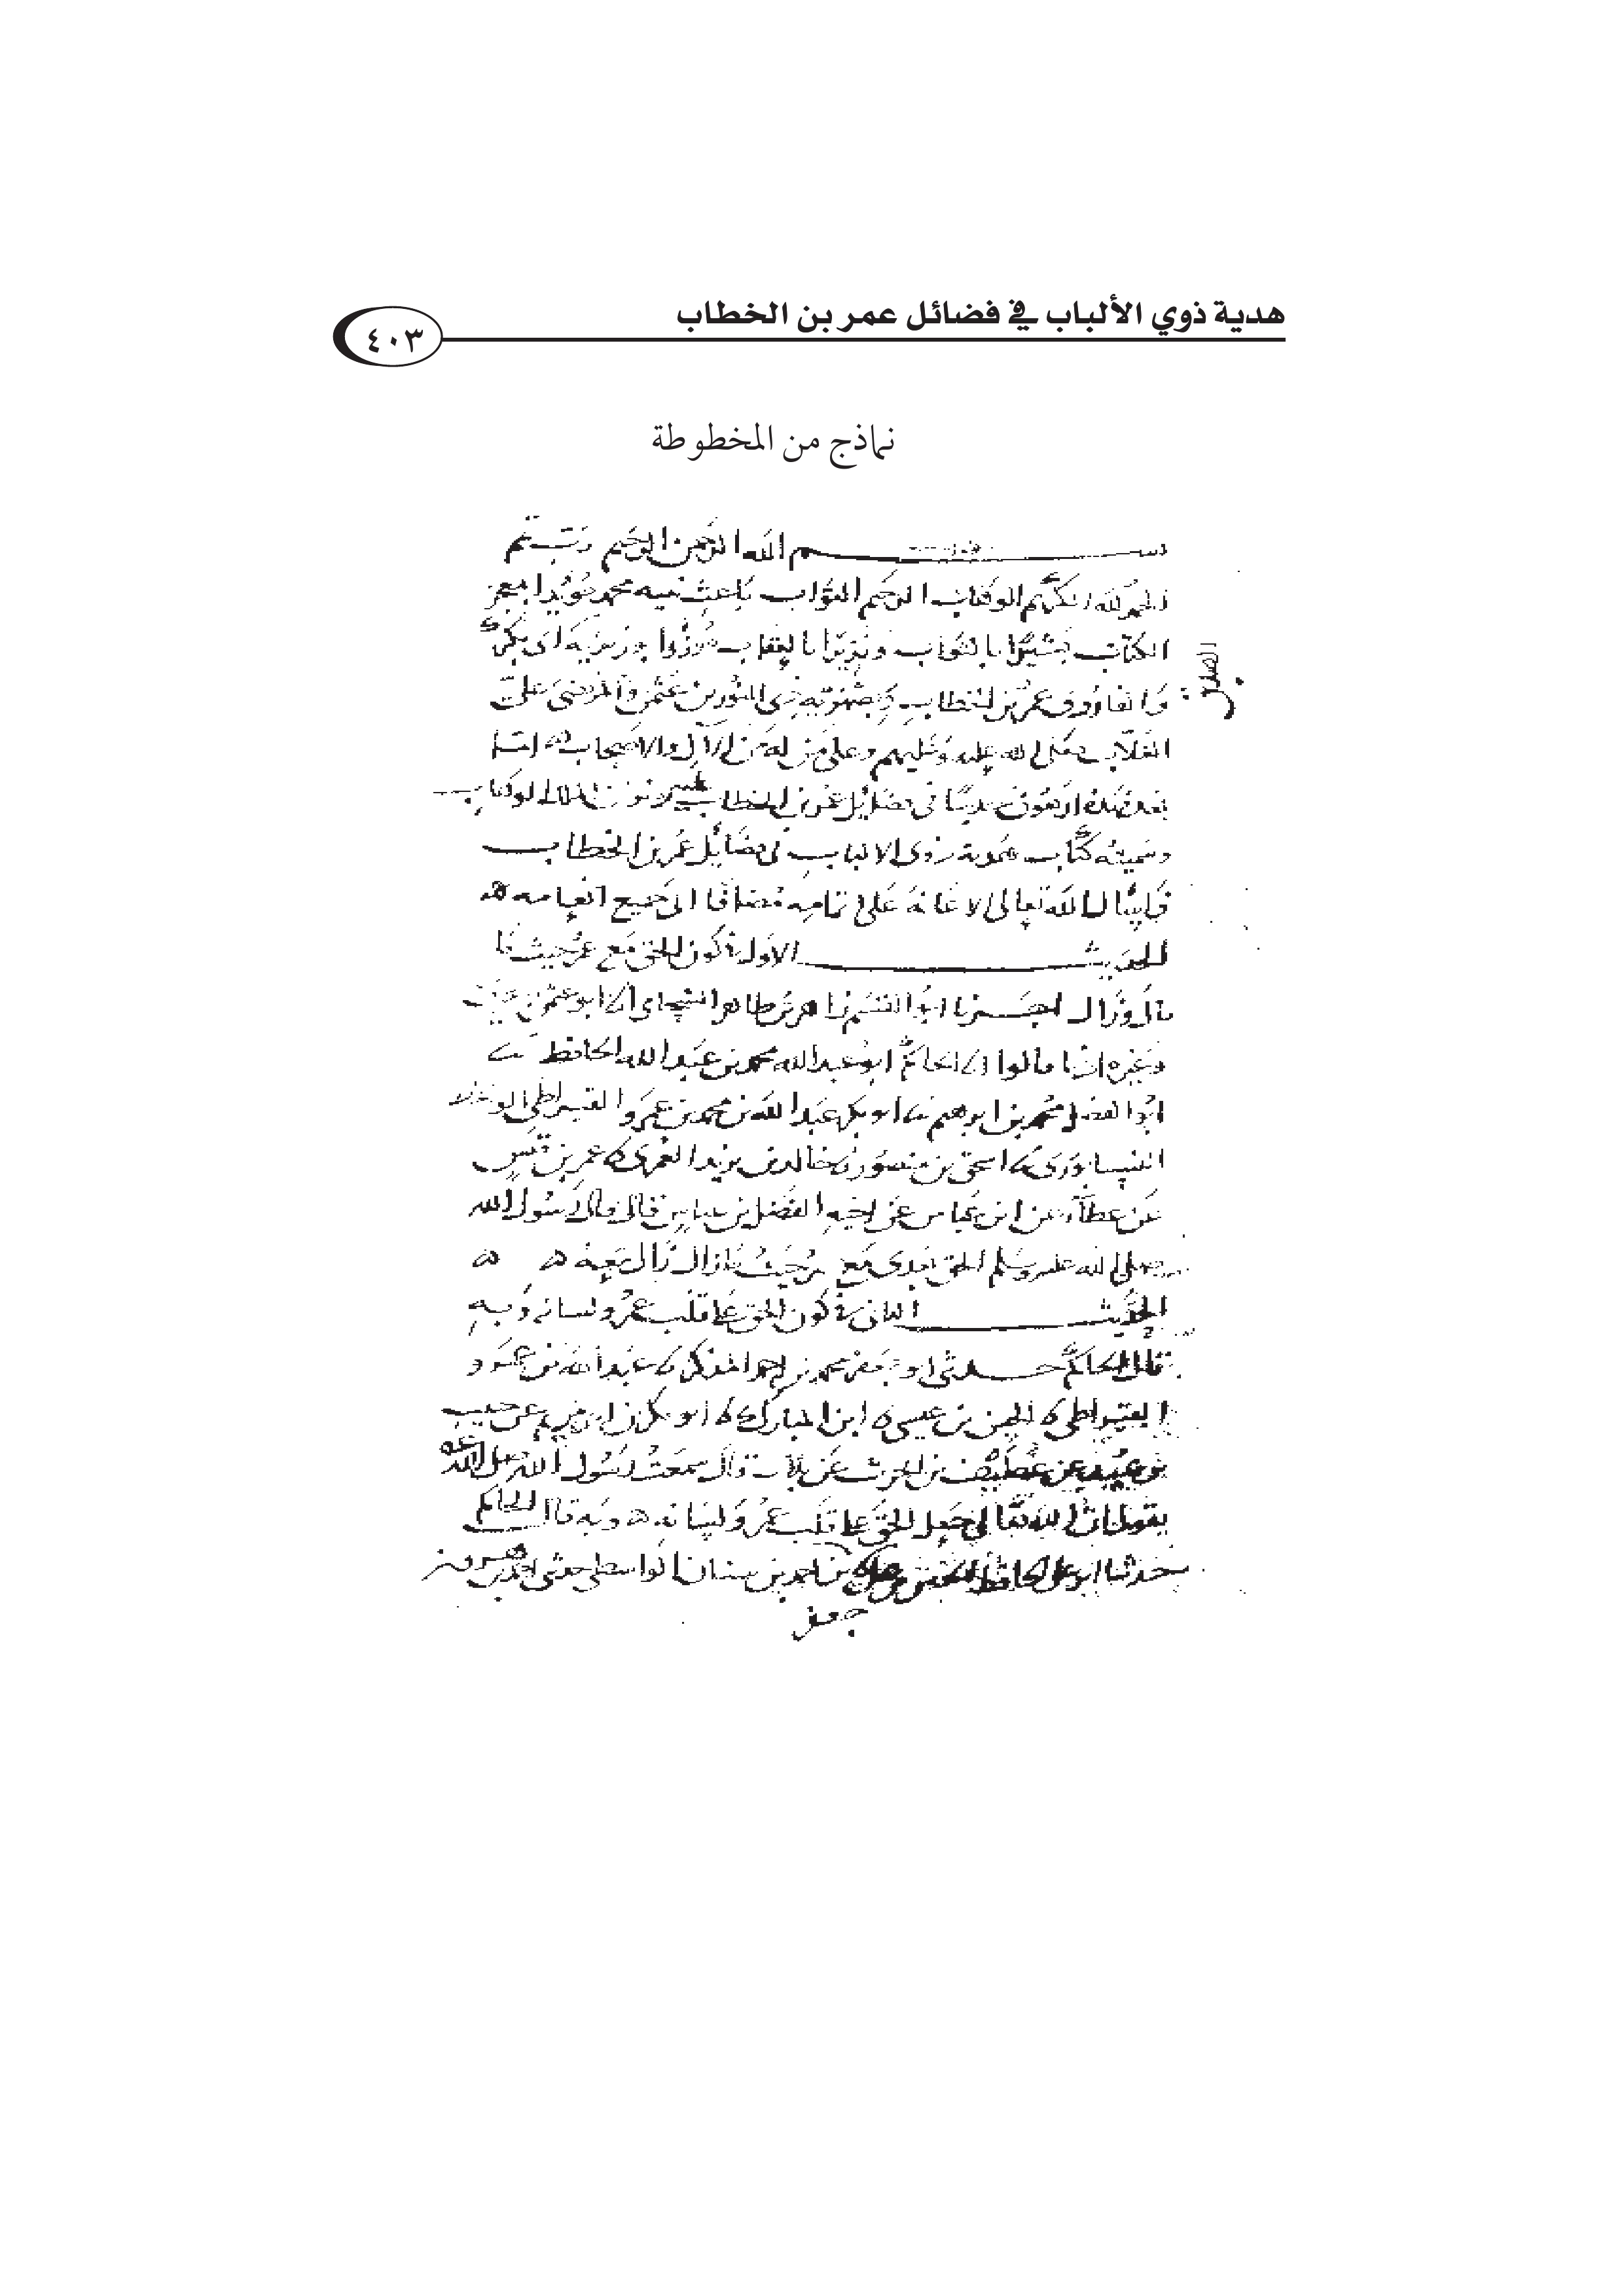 هدية ذوي الألباب في فضائل عمر بن الخطاب
٤٠٣
نماذج من المخطوطة
بسم الله الرحمن الرحيم رب تمم
الحمد لله الكريم الوهاب الرحيم التواب باعث نبيه محمد مويدا بمعجز
الكتاب مبشرا بالثواب ونذيرا بالعقاب بوزيريه ابى بكر
الصديق
والفاروق عمر بن الخطاب ذى النورين عثمن والمرتضى على
صلى الله عليه وعليهم وعلى من له من الآل والاصحاب اما
بعد فهذه اربعون حديثا فى فضايل عمر بن الخطاب الوهاب
وسميته كتاب هدية ذوى الالباب فى فضايل عمر بن الخطاب
الله تعالى الاعانة على تمامه مضافا الى جميع انعامه
الحديث الاول فى كون الحق مع عمر حيث
ما زال وزال اخبرنا ابو القسم زاهر بن طاهر الشحامى ابو عثمن
وغيره اذنا قالوا الحاكم ابو عبد الله محمد بن عبد الله الحافظ
ابو الفضل محمد بن ابرهيم ابو بكر عبد الله بن محمد بن عمرو
النيسابورى اسحق بن منصور خالد بن يزيد العمرى عمر بن قيس
عن عطاء عن ابن عباس عن اخيه الفضل بن عباس قال قال رسول الله
صلى الله عليه وسلم الحق بعدى مع عمر حيث ما زال زال معه
الحديث الثانى فى كون الحق على قلب عمر ولسانه وبه
قال الحاكم حدثنى ابو جعفر محمد بن احمد المذكر عبد الله بن
بن عيسى ابن المبارك ابو بكر بن ابى مريم عن حبيب
بن عبيد عن غضيف بن الحرث عن بلال قال سمعت رسول الله صلى الله
يقول ان الله تعالى جعل الحق على قلب عمر ولسانه وبه قال الحاكم
حدثنا ابو على الحافظ بن احمد بن سنان الواسطى حدثنى احمد بن
جعفر